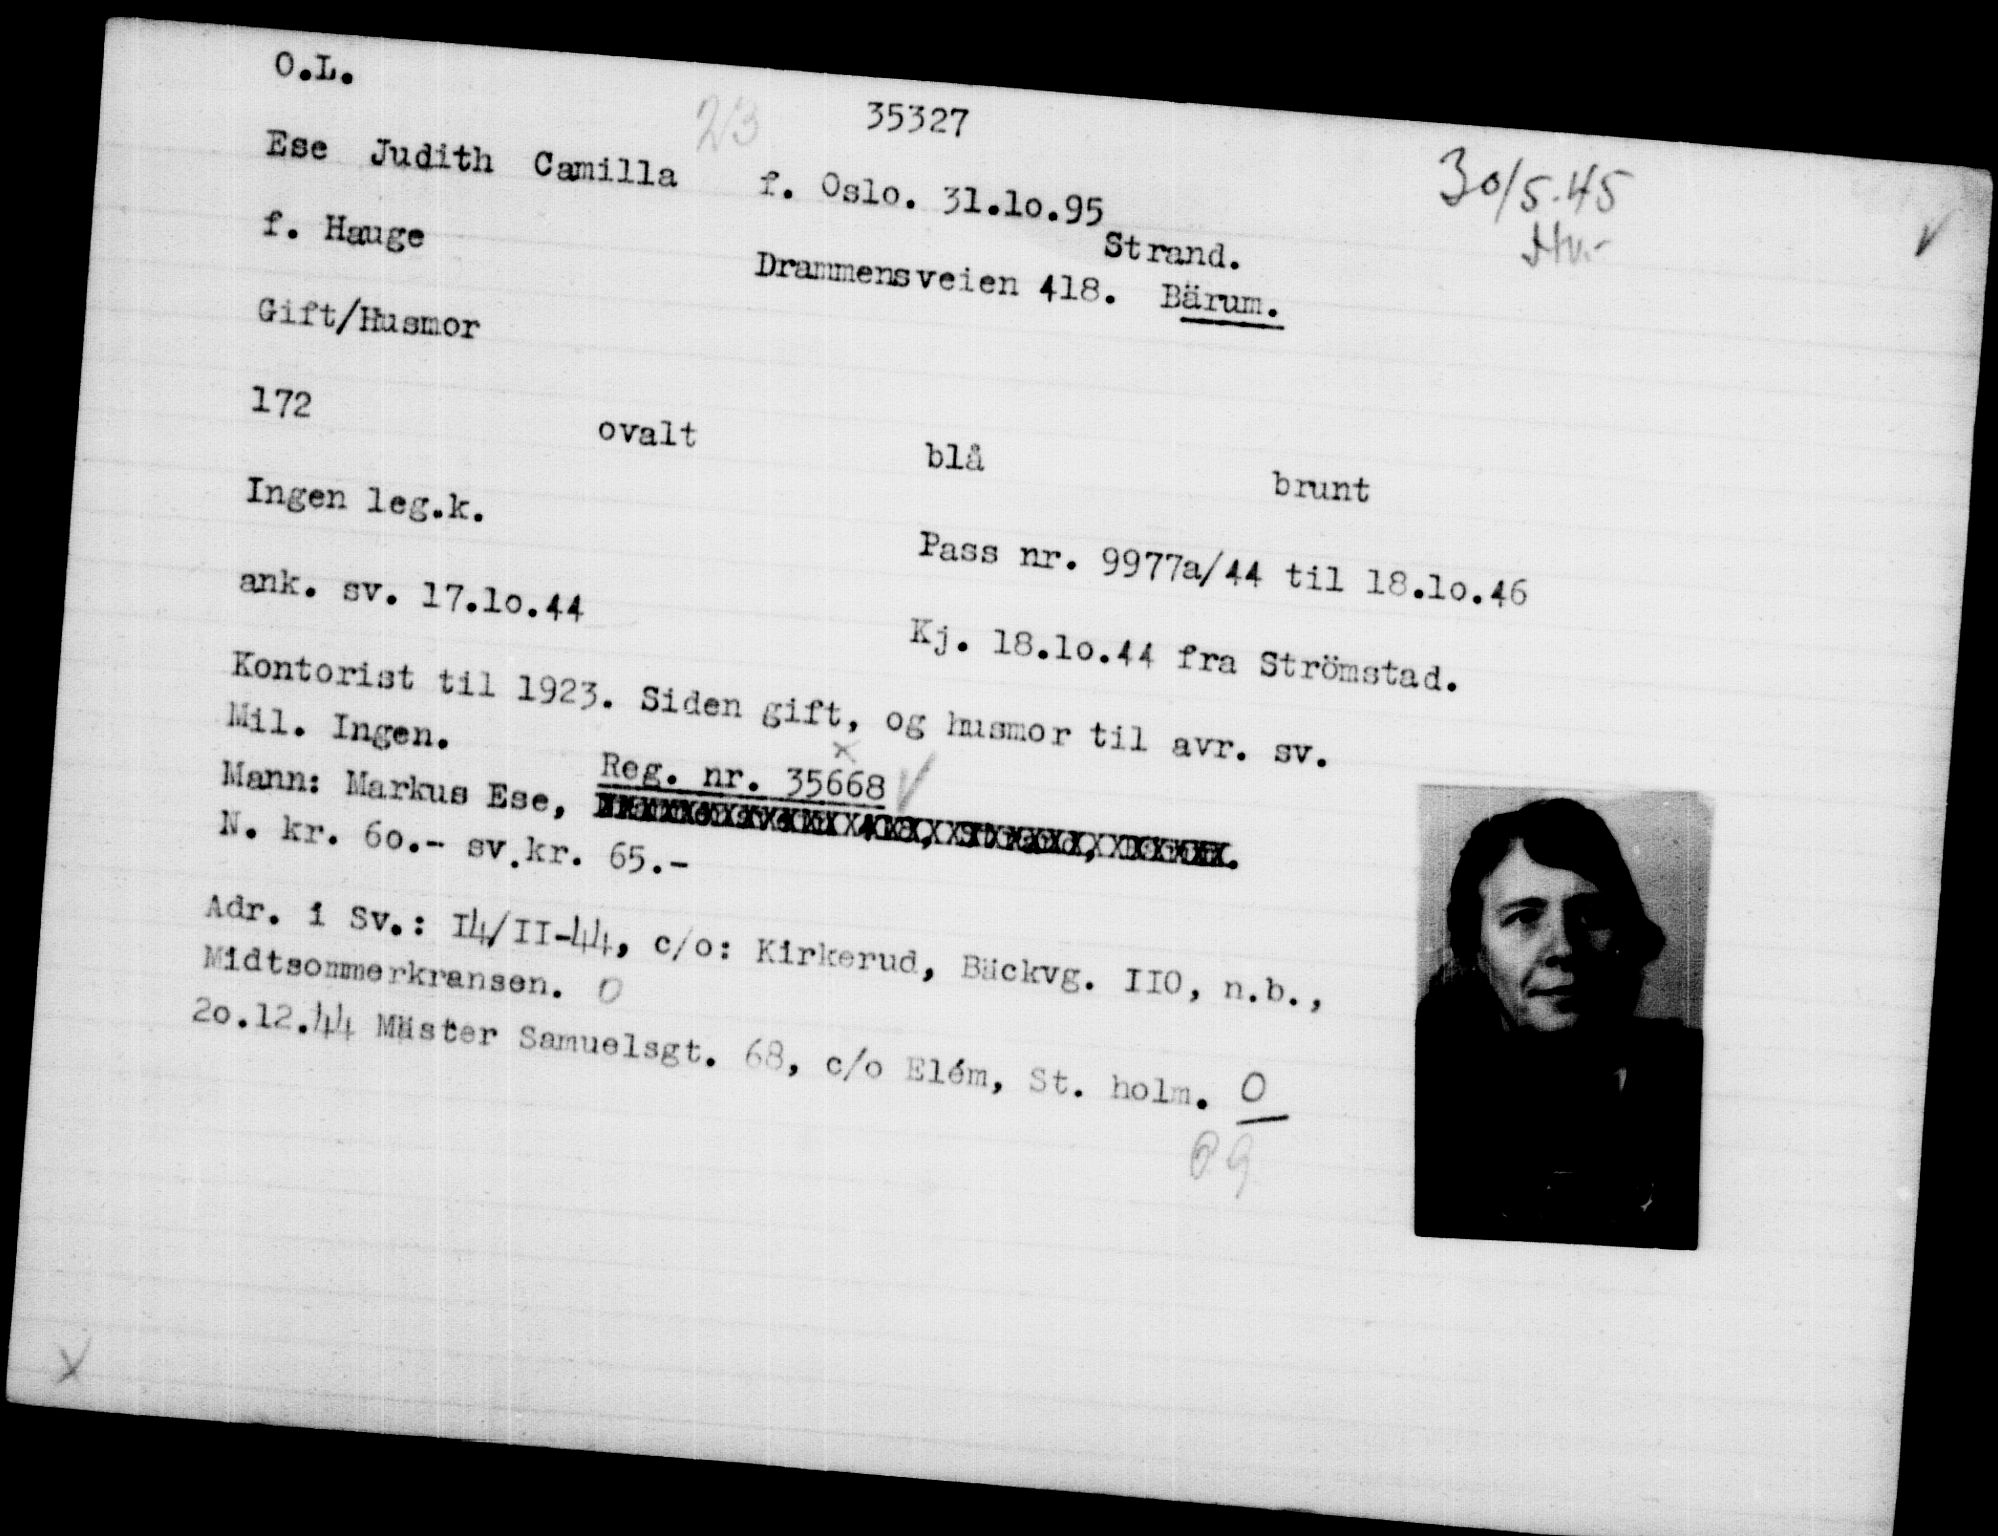 O.L.
23 35327
Ese Judith Camilla f. Oslo. 31.10.95
30/5.45
f. Hauge Strand.
Drammensveien 418. Bärum.
Gift/Husmor
172 ovalt blå brunt
Ingen leg.k. Pass nr. 9977a/44 til 18.10.46
ank. sv. 17.10.44 Kj. 18.10.44 fra Strömstad.
Kontorist til 1923. Siden gift, og husmor til avr. sv.
Mil. Ingen.
Reg. nr. 35668
Mann: Markus Ese,
N. kr. 60.- sv.kr. 65.-
Adr. i Sv.: I4/II-44, c/o: Kirkerud, Bäckvg. IIO, n.b.,
Midtsommerkransen. O
20.12.44 Mäster Samuelsgt. 68, c/o Elém, St. holm. O